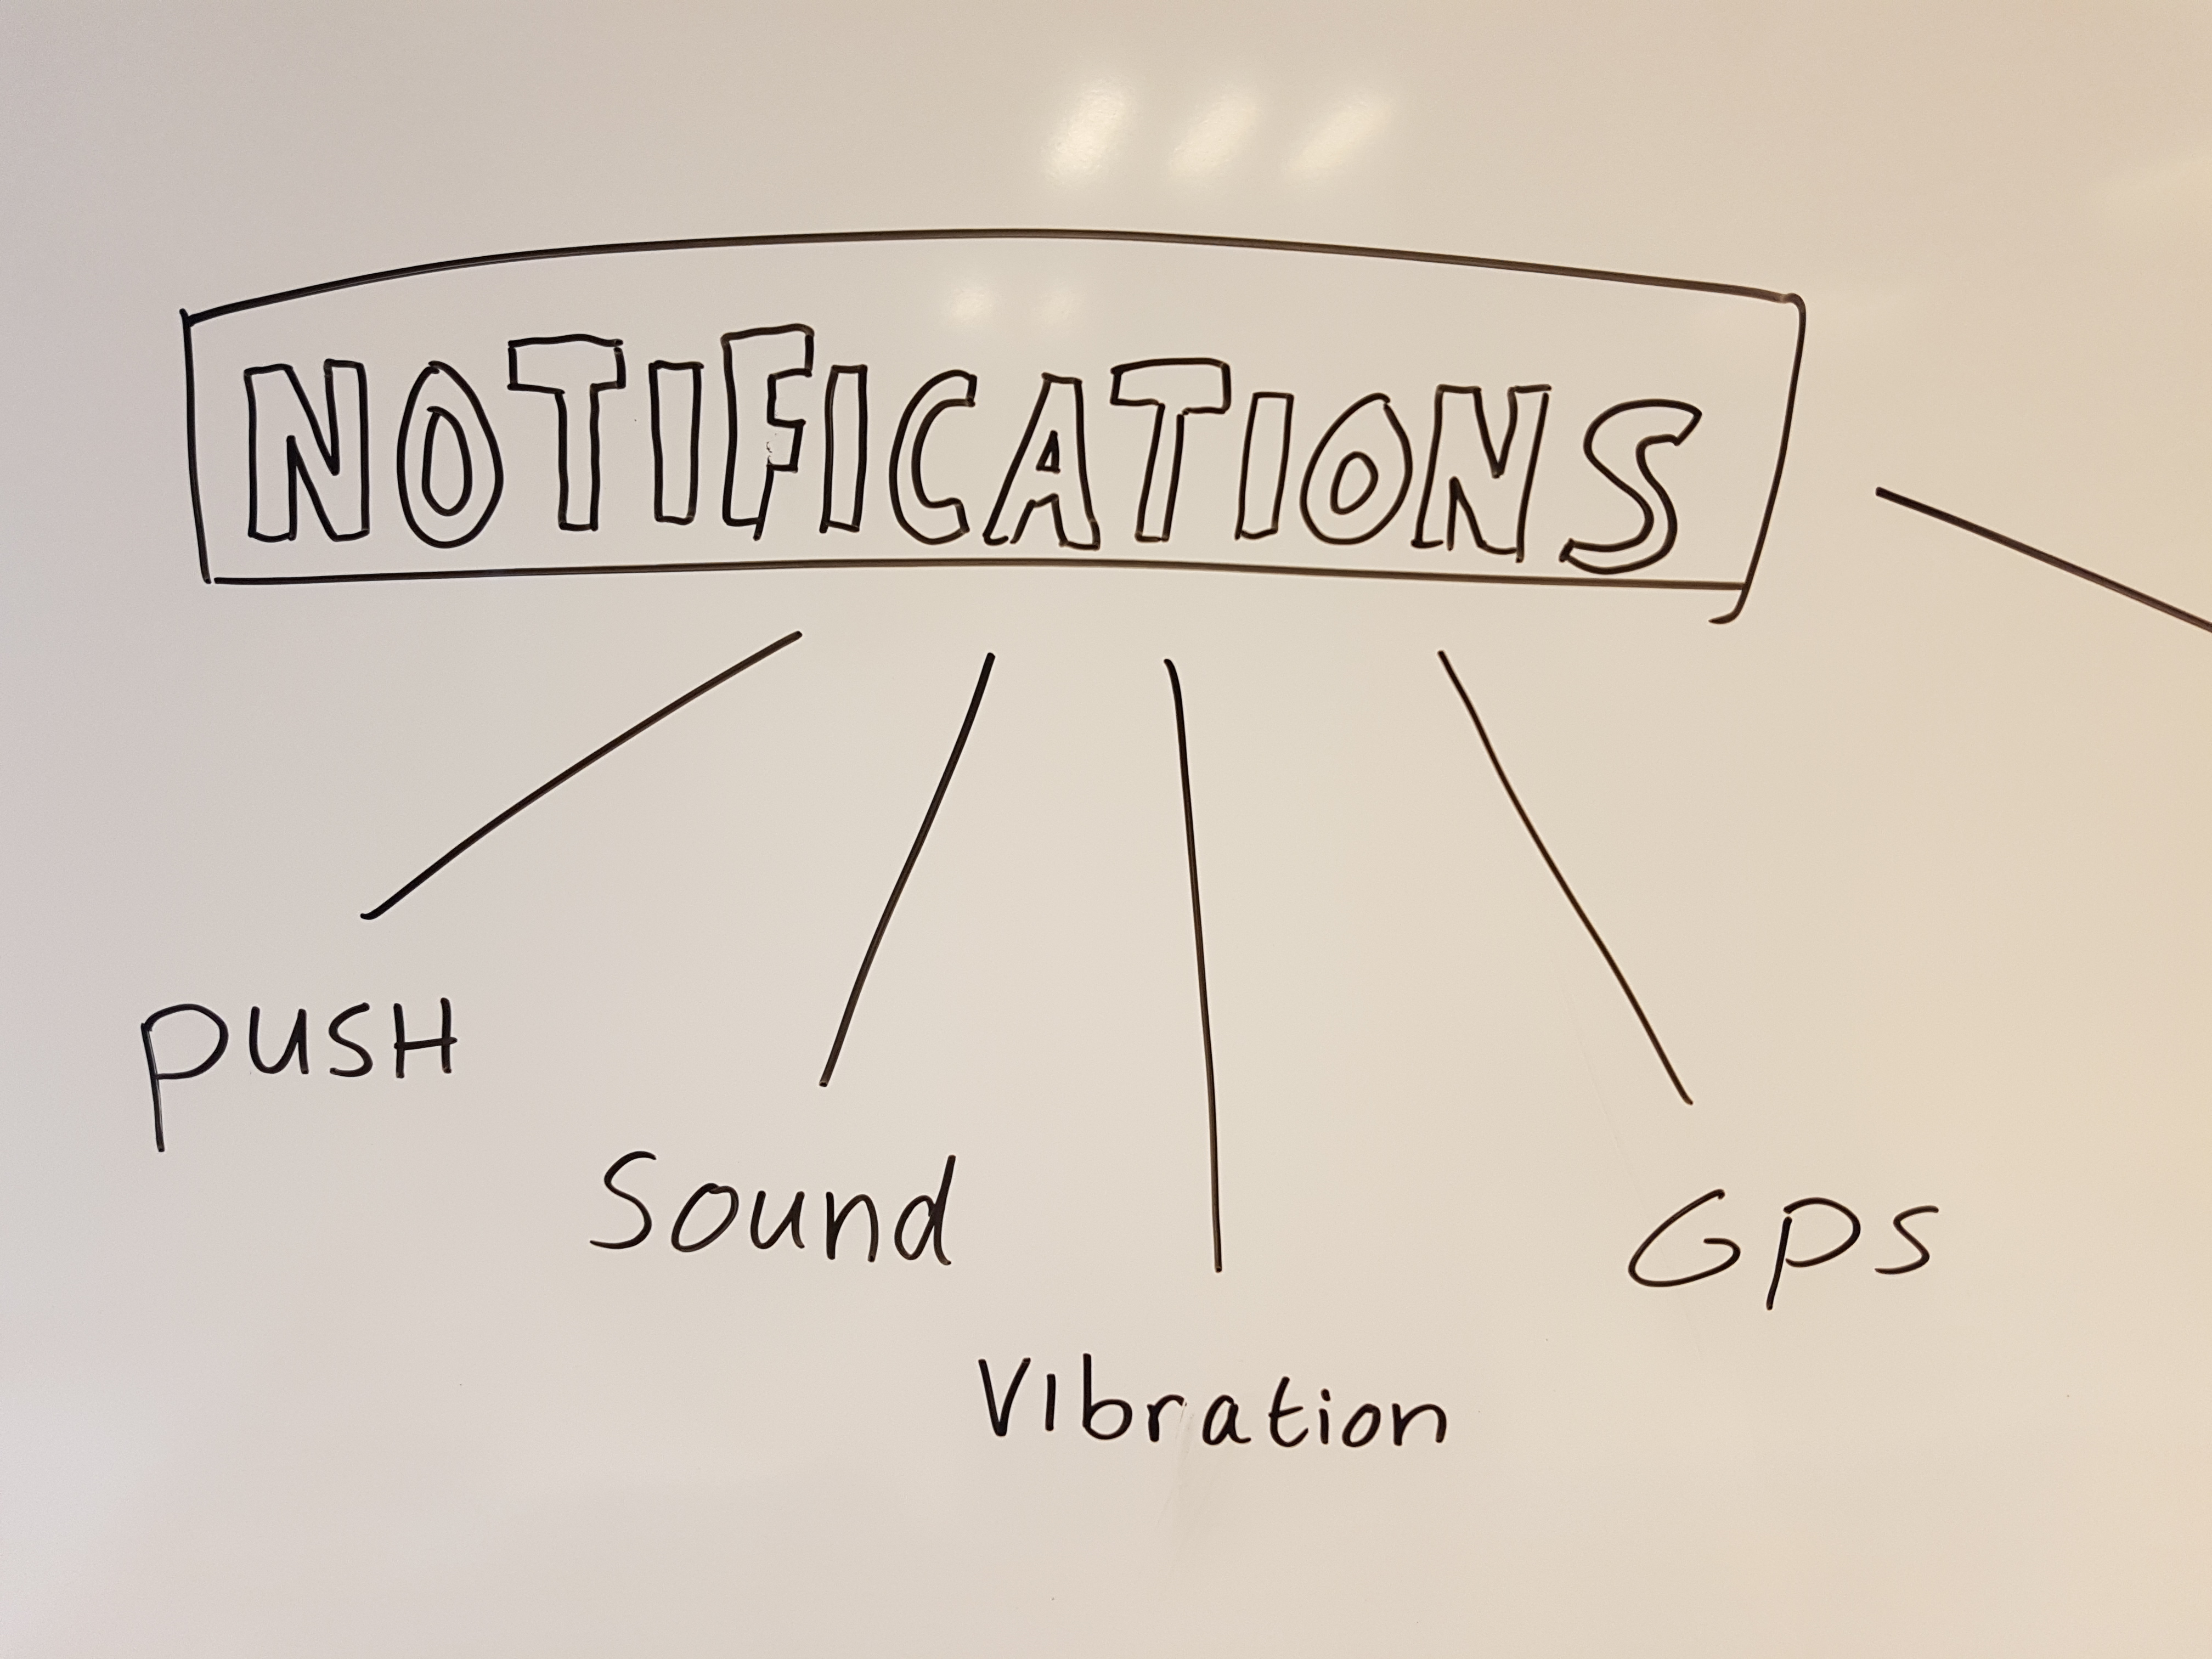 NOTIFICATIONS
PUSH
Sound
Vibration
GPS